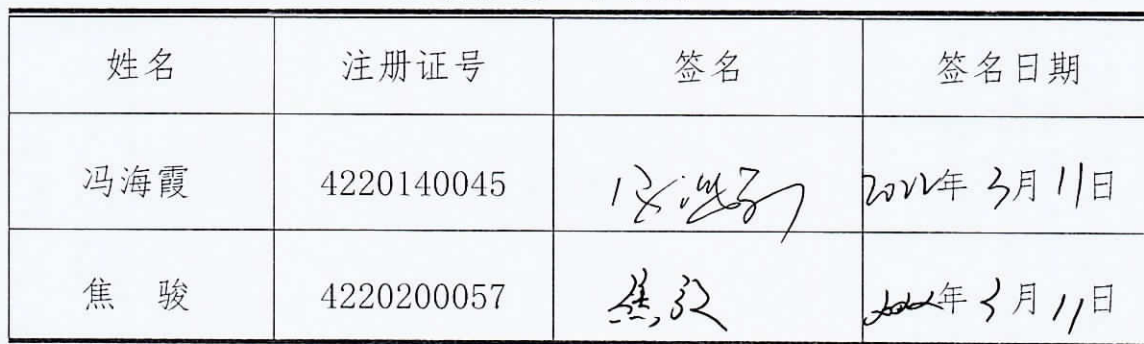 姓名 注册证号 签名 签名日期
冯海霞 4220140045 冯海霞 2022年3月11日
焦 骏 4220200057 焦骏 2022年3月11日